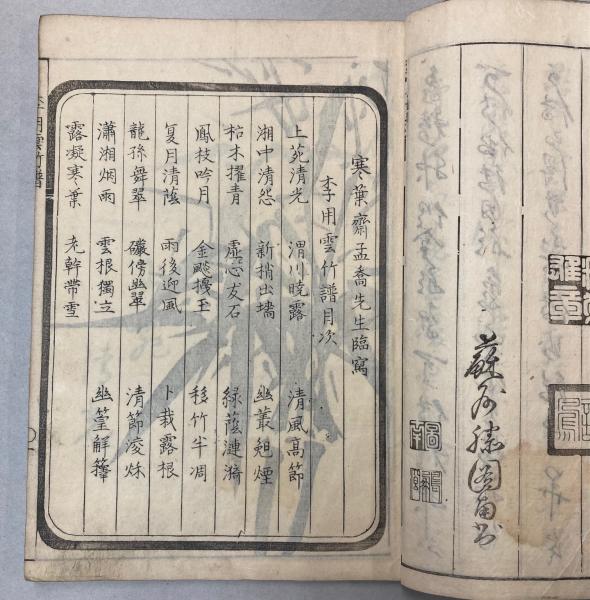 蘇州滕圖南書
圖南
寒葉齋孟喬先生臨寫
李用雲竹譜目次
上苑清光 渭川曉露 清風高節
湘中清怨 新梢出墻 幽叢 煙
枯木擢青 虛心友石 緑蔭漣漪
鳳枝吟月 金飈 玉 移竹半凋
夏月清蔭 雨後迎風 卜栽露根
龍孫舞翠 傍幽翠 清節凌秋
瀟湘烟雨 雲根獨立 幽篁解籜
露凝寒葉 老幹帶雪
李用雲竹譜